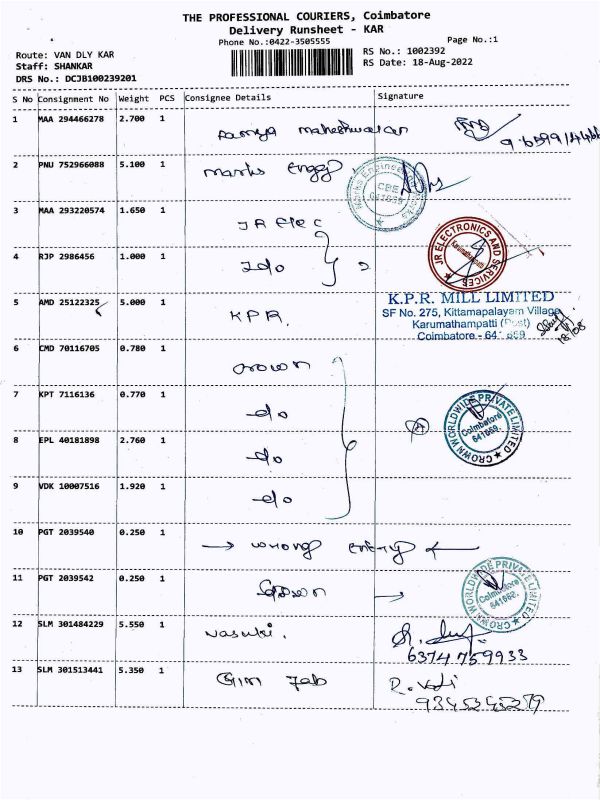 THE PROFESSIONAL COURIERS, Coimbatore
Delivery Runsheet - KAR
Phone No.:0422-3505555
Page No.:1
Route: VAN DLY KAR
RS No.: 1002392
Staff: SHANKAR
RS Date: 18-Aug-2022
DRS No.: DCJB100239201
S No Consignment No Weight PCS Consignee Details Signature
1 MAA 294466278 2.700 1 Ramya maheshwaran
2 PNU 752966088 5.100 1 marks engg
CBE
641659
3 MAA 293220574 1.650 1 JR Elec
JR ELECTRONICS AND SERVICES
Karumathampatti
4 RJP 2986456 1.000 1 do 2
5 AMD 25122325 5.000 1 KPR.
K.P.R. MILL LIMITED
SF No. 275, Kittamapalayam Village
Karumathampatti (Post)
Coimbatore - 641 659
18/08
6 CMD 70116705 0.780 1 crown
7 KPT 7116136 0.770 1 do
CROWN WORLDWIDE PRIVATE LIMITED
Coimbatore
641669.
8 EPL 40181898 2.760 1 do
4
9 VDK 10007516 1.920 1 do
10 PGT 2039540 0.250 1 → wrong entry ←
11 PGT 2039542 0.250 1 →
CROWN WORLDWIDE PRIVATE LIMITED
Coimbatore
12 SLM 301484229 5.550 1 Vasuki.
6374759933
13 SLM 301513441 5.350 1